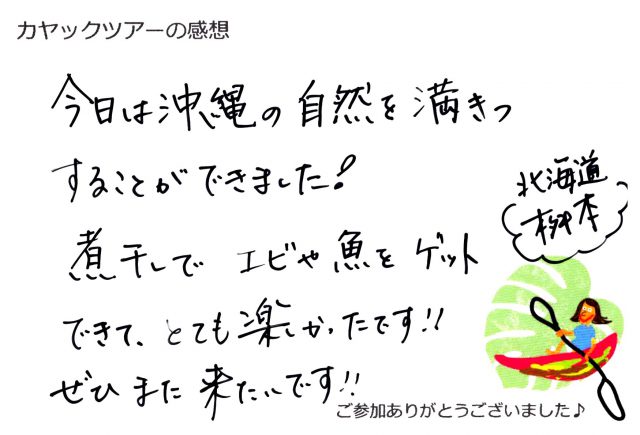 カヤックツアーの感想
今日は沖縄の自然を満きつ
することができました!
煮干しで エビや魚を ゲット
できて、とても楽しかったです!!
ぜひ また 来たいです!!
北海道
桝本
ご参加ありがとうございました♪